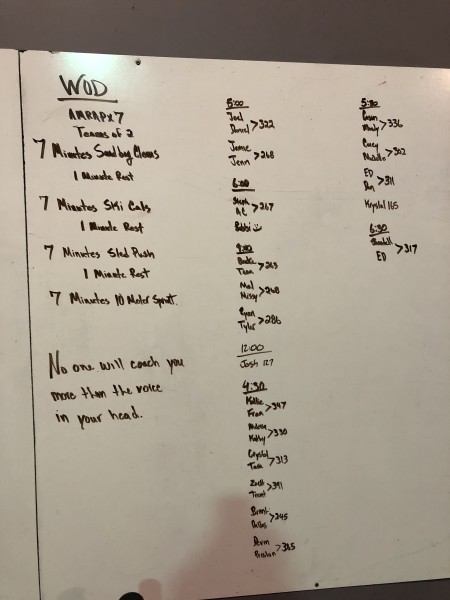 WOD
AMRAP x 7
Teams of 2
7 Minutes Sandbag Cleans
1 Minute Rest
7 Minutes Ski Cals
1 Minute Rest
7 Minutes Sled Push
1 Minute Rest
7 Minutes 10 Meter Sprint.
No one will coach you
more than the voice
in your head.
5:00
Joel
Daniel >322
Jamie
Jenn >268
6:00
Steph
AC >267
Bobbi
9:00
>263
Mal
Missy >268
Ryan
Tyler >286
12:00
Josh 127
4:30
Kallie
Fran >347
Kathy >330
Crystal
Tara >313
Zach
Trent >391
>245
>325
5:30
>336
Corey
>302
ED
>311
Krystal 165
6:30
ED >317